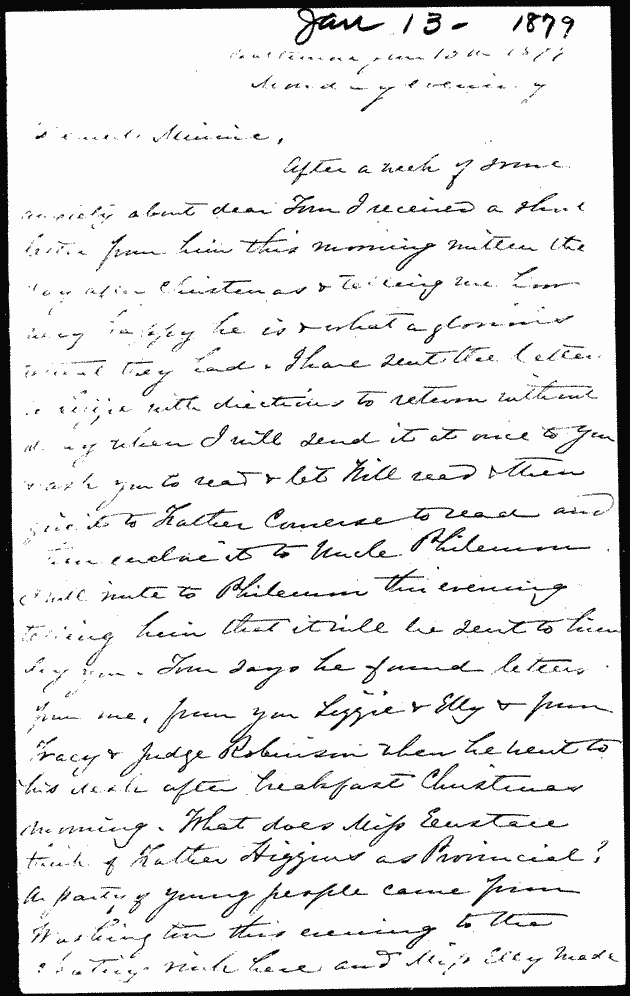 Jan 13 - 1879
Baltimore Jan 13th 1879
Monday evening
Dearest Minnie,
After a week of some
anxiety about dear Tom I received a short
letter from him this morning written the
day after Christmas & telling me how
very happy he is & what a glorious
they had. I have sent the letter
to Lizzie with directions to return without
delay when I will send it at once to you
& ask you to read & let Will read & then
give it to Father Comerse to read and
then enclose it to Uncle Philemon.
I will write to Philemon this evening
telling him that it will be sent to him
by you. Tom says he found letters
from me, from you Lizzie & Elly & from
Tracy & Judge Robinson when he went to
his desk after breakfast Christmas
morning. What does Miss Eustace
think of Father Higgins as Provincial?
A party of young people came from
Washington this evening to the
skating rink here and Miss Elly made